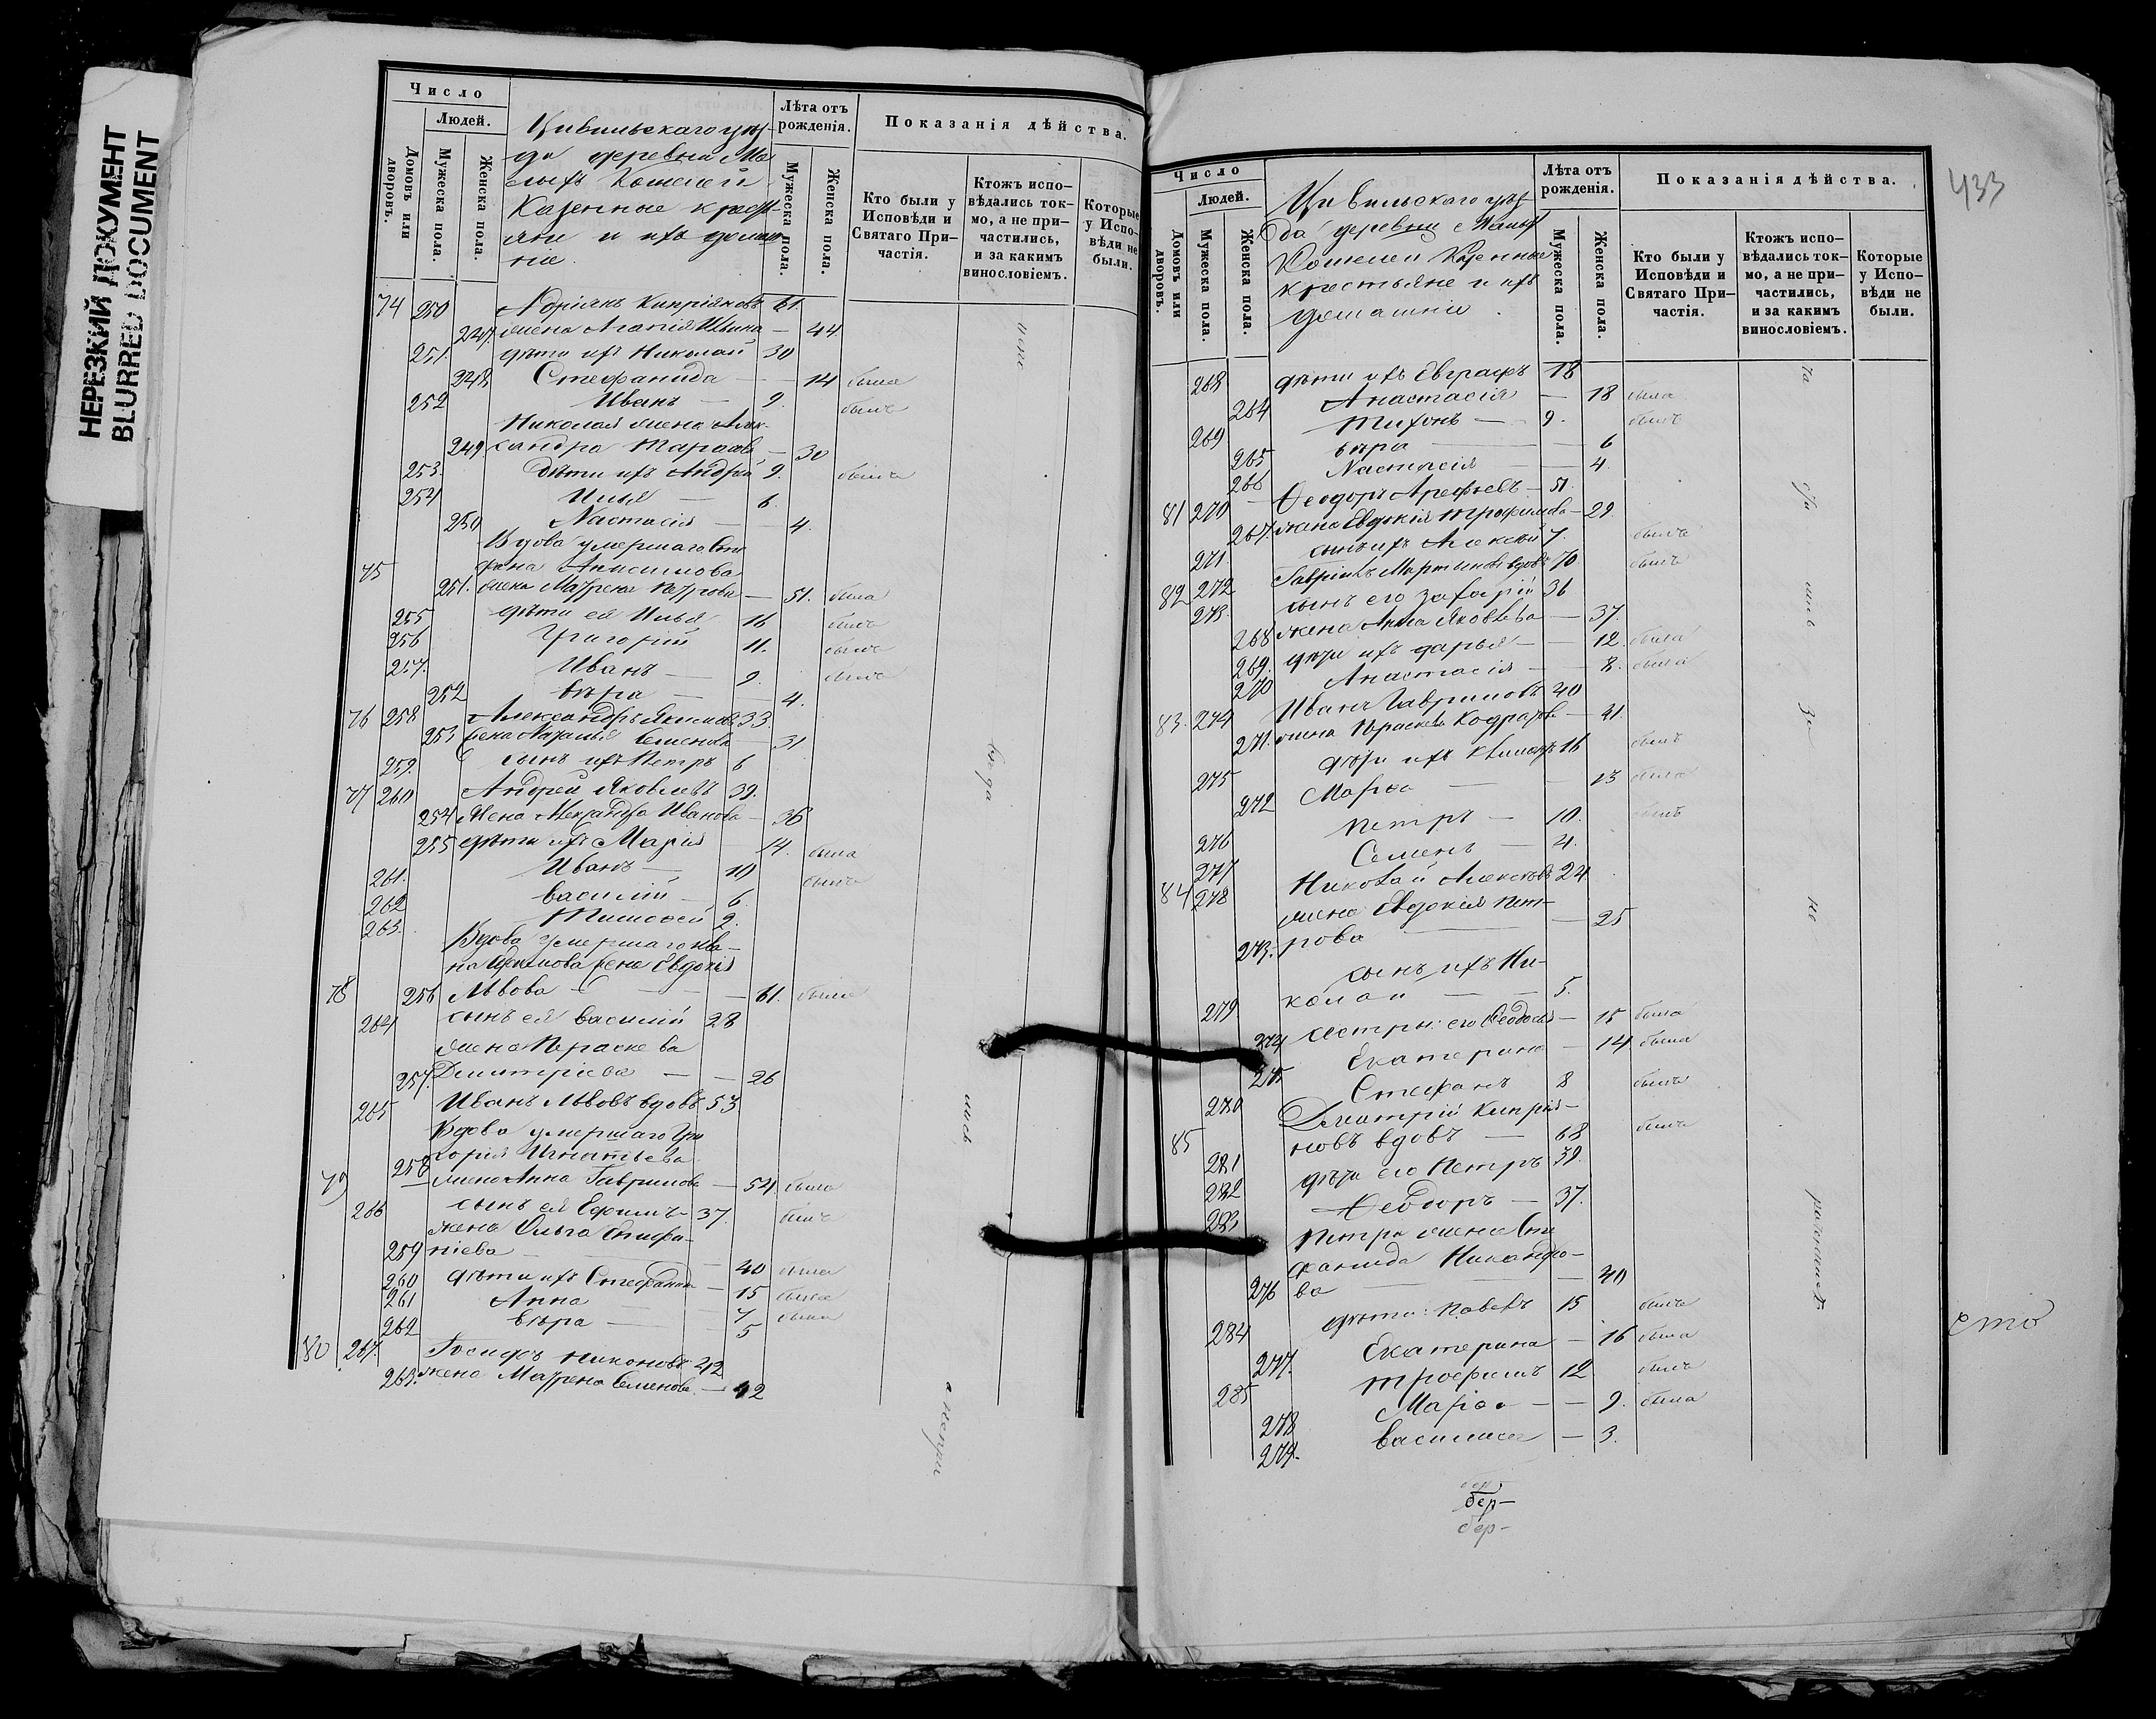 НЕРЕЗКИЙ ДОКУМЕНТ
BLURRED DOCUMENT
Число
Людей.
Домовъ или дворовъ.
Мужеска пола.
Женска пола.
Цивильскаго уѣз-
да деревни Ма
лыхъ Кошелей
Казенные крест-
яне и ихъ домаш
ніе.
Лѣта отъ рожденія.
Мужеска пола.
Женска пола.
Показанія дѣйства.
Кто были у Исповѣди и Святаго При-частія.
Ктожъ испо-вѣдались ток-мо, а не при-частились, и за какимъ винословіемъ.
Которые у Испо-вѣди не были.
74 250 Адріянъ Кипріяновъ 61.
247. жена Агапія — 44
251. дѣти ихъ Николай 30
248 Стефанида — 14 была
252 Иванъ — 9. былъ
Николая жена Алек-
249 сандра Тарасова — 30
253. Дѣти ихъ Андрей 9. былъ
254 Илья — 6.
250 Настасія — 4.
Вдова умершаго Сте
75 фана Анисимова
251. жена Матрена Петрова — 51. была
255 дѣти ея Илья 16 былъ
256 Григорій 11. былъ
257. Иванъ — 9. былъ
252 Вѣра — 4.
76 258 Александръ Якимовъ 33.
253 жена Наталья Семенова — 31
259. сынъ ихъ Петръ 6
77 260 Андрей Яковлевъ 39.
254 жена Александра Иванова — 36
255 дѣти ихъ Марія — 14. была
261. Иванъ — 10 былъ
262 Василій — 6.
263. Тимофей 2.
Вдова умершаго Ива-
на жена Евдокія
78 256 Львова — 61. была
264 сынъ ея Василій 28
жена Праскева
257. Димитріева — 26
265 Иванъ Львовъ вдовъ 53
Вдова умершаго Гри
горія Игнатьева
79 258 жена Анна Гаврилова — 54. была
266 сынъ ея Ефимъ — 37. былъ
жена Ольга Епифа-
259 ніева — 40 была
260 дѣти ихъ Стефанида — 15 была
261 Анна — 7 была
262 Вѣра — 5
80 267. Іосифъ Никоновъ 42
263. жена Матрена Семенова — 42
Число
Людей.
Домовъ или дворовъ.
Мужеска пола.
Женска пола.
Цивильскаго уѣз-
да деревни Малыхъ
Кошелей Казенные
крестьяне и ихъ
домашніе.
Лѣта отъ рожденія.
Мужеска пола.
Женска пола.
Показанія дѣйства.
Кто были у Исповѣди и Святаго При-частія.
Ктожъ испо-вѣдались ток-мо, а не при-частились, и за какимъ винословіемъ.
Которые у Испо-вѣди не были.
433
268 дѣти ихъ Евграфъ 18
264 Анастасія — 18 была
269 Тихонъ — 9. былъ
265 Вѣра — 6
266 Настасія — 4.
81 270 Ѳеодоръ Арефьевъ — 51.
267. жена Евдокія Трофимова — 29.
271. сынъ ихъ Алексѣй 7. былъ
82 272 Гавріилъ Мартыновъ вдовъ 70 былъ
273. сынъ его Захарій 36
268 жена Анна Яковлева — 37.
269. дѣти ихъ Дарья — 12. была
270 Анастасія — 8. была
83. 274 Иванъ Гавриловъ 40
271. жена Праскева — 41.
275 дѣти ихъ 16 былъ
272 Марѳа — 13 была
276 Петръ — 10. былъ
277 Семенъ — 4.
84 278 Николай Алексѣевъ 24
жена Евдокія Пет-
273. рова — 25
сынъ ихъ Ни-
279 колай — 5.
274 сестры его Ѳеодосья — 15 была
275 Екатерина — 14 была
280 Стефанъ 8 былъ
Димитрій Кипрія-
85 281 новъ вдовъ — 68 былъ
282 дѣти его Петръ 39.
283 Ѳеодоръ — 37.
Петра жена Сте
фанида Никандро-
276 ва — 40
284 дѣти: Павелъ 15 былъ
277. Екатерина — 16 была
285 Трофимъ 12 былъ
278 Марѳа — 9. была
279. Василиса — 3.
бер-
бер-
сто